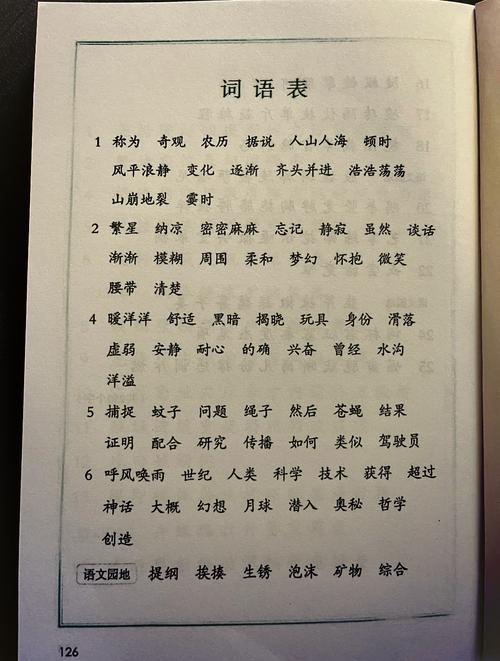 词语表
1 称为 奇观 农历 据说 人山人海 顿时
风平浪静 变化 逐渐 齐头并进 浩浩荡荡
山崩地裂 霎时
2 繁星 纳凉 密密麻麻 忘记 静寂 虽然 谈话
渐渐 模糊 周围 柔和 梦幻 怀抱 微笑
腰带 清楚
4 暖洋洋 舒适 黑暗 揭晓 玩具 身份 滑落
虚弱 安静 耐心 的确 兴奋 曾经 水沟
洋溢
5 捕捉 蚊子 问题 绳子 然后 苍蝇 结果
证明 配合 研究 传播 如何 类似 驾驶员
6 呼风唤雨 世纪 人类 科学 技术 获得 超过
神话 大概 幻想 月球 潜入 奥秘 哲学
创造
语文园地 提纲 挨揍 生锈 泡沫 矿物 综合
126